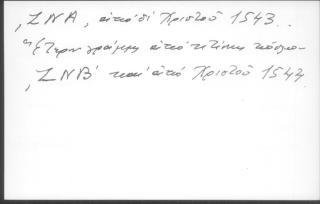 ,ΖΝΑ, ἀπὸ δὲ Χριστοῦ 1543..
ἀπὸ κτίσεως κόσμου
,ΖΝΒ' καὶ ἀπὸ Χριστοῦ 1544